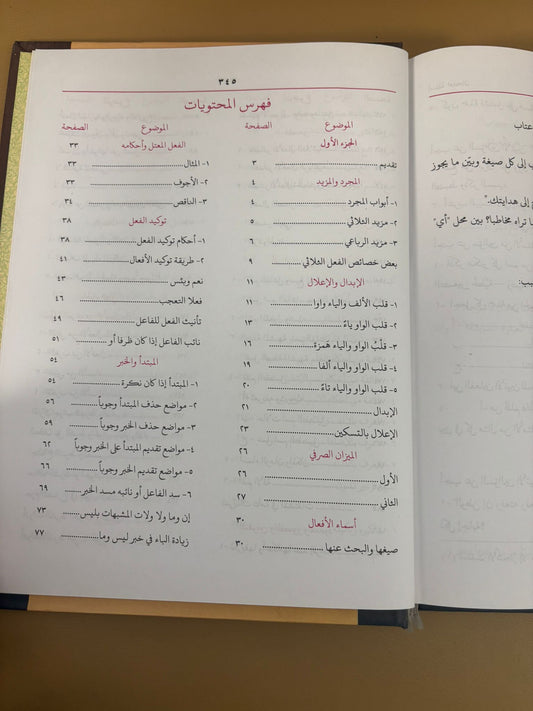 ٣٤٥
فهرس المحتويات
الموضوع الصفحة
الجزء الأول
تقديم ٣
المجرد والمزيد ٤
١- أبواب المجرد ٤
٢- مزيد الثلاثي ٥
٣- مزيد الرباعي ٦
بعض خصائص الفعل الثلاثي ٩
الإبدال والإعلال ١١
١- قلب الألف والياء واوا ١١
٢- قلب الواو ياءً ١٣
٣- قلْبُ الواو والياء هَمزة ١٦
٤- قلب الواو والياء ألفا ١٩
٥- قلب الواو والياء تاءً ٢٠
الإبدال ٢١
الإعلال بالتسكين ٢٣
الميزان الصرفي ٢٦
الأول ٢٦
الثاني ٢٧
أسماء الأفعال ٣٠
صيغها والبحث عنها ٣٠
الموضوع الصفحة
الفعل المعتل وأحكامه ٣٣
١- المثال ٣٣
٢- الأجوف ٣٣
٣- الناقص ٣٤
توكيد الفعل ٣٨
١- أحكام توكيد الفعل ٣٨
٢- طريقة توكيد الأفعال ٤١
نعم وبئس ٤٣
فعلا التعجب ٤٦
تأنيث الفعل للفاعل ٤٩
نائب الفاعل إذا كان ظرفا أو ٥١
المبتدأ والخبر ٥٤
١- المبتدأ إذا كان نكرة ٥٤
٢- مواضع حذف المبتدأ وجوباً ٥٦
٣- مواضع حذف الخبر وجوباً ٥٩
٤- مواضع تقديم المبتدأ على الخبر وجوباً ٦٢
٥- مواضع تقديم الخبر وجوباً ٦٦
٦- سد الفاعل أو نائبه مسد الخبر ٦٩
إن وما ولا ولات المشبهات بليس ٧٣
زيادة الباء في خبر ليس وما ٧٧
عتاب
إلى كل صيغة وبيّن ما يجوز
إلى هدايتك."
تراه مخاطبا؟ بين محل "أي"